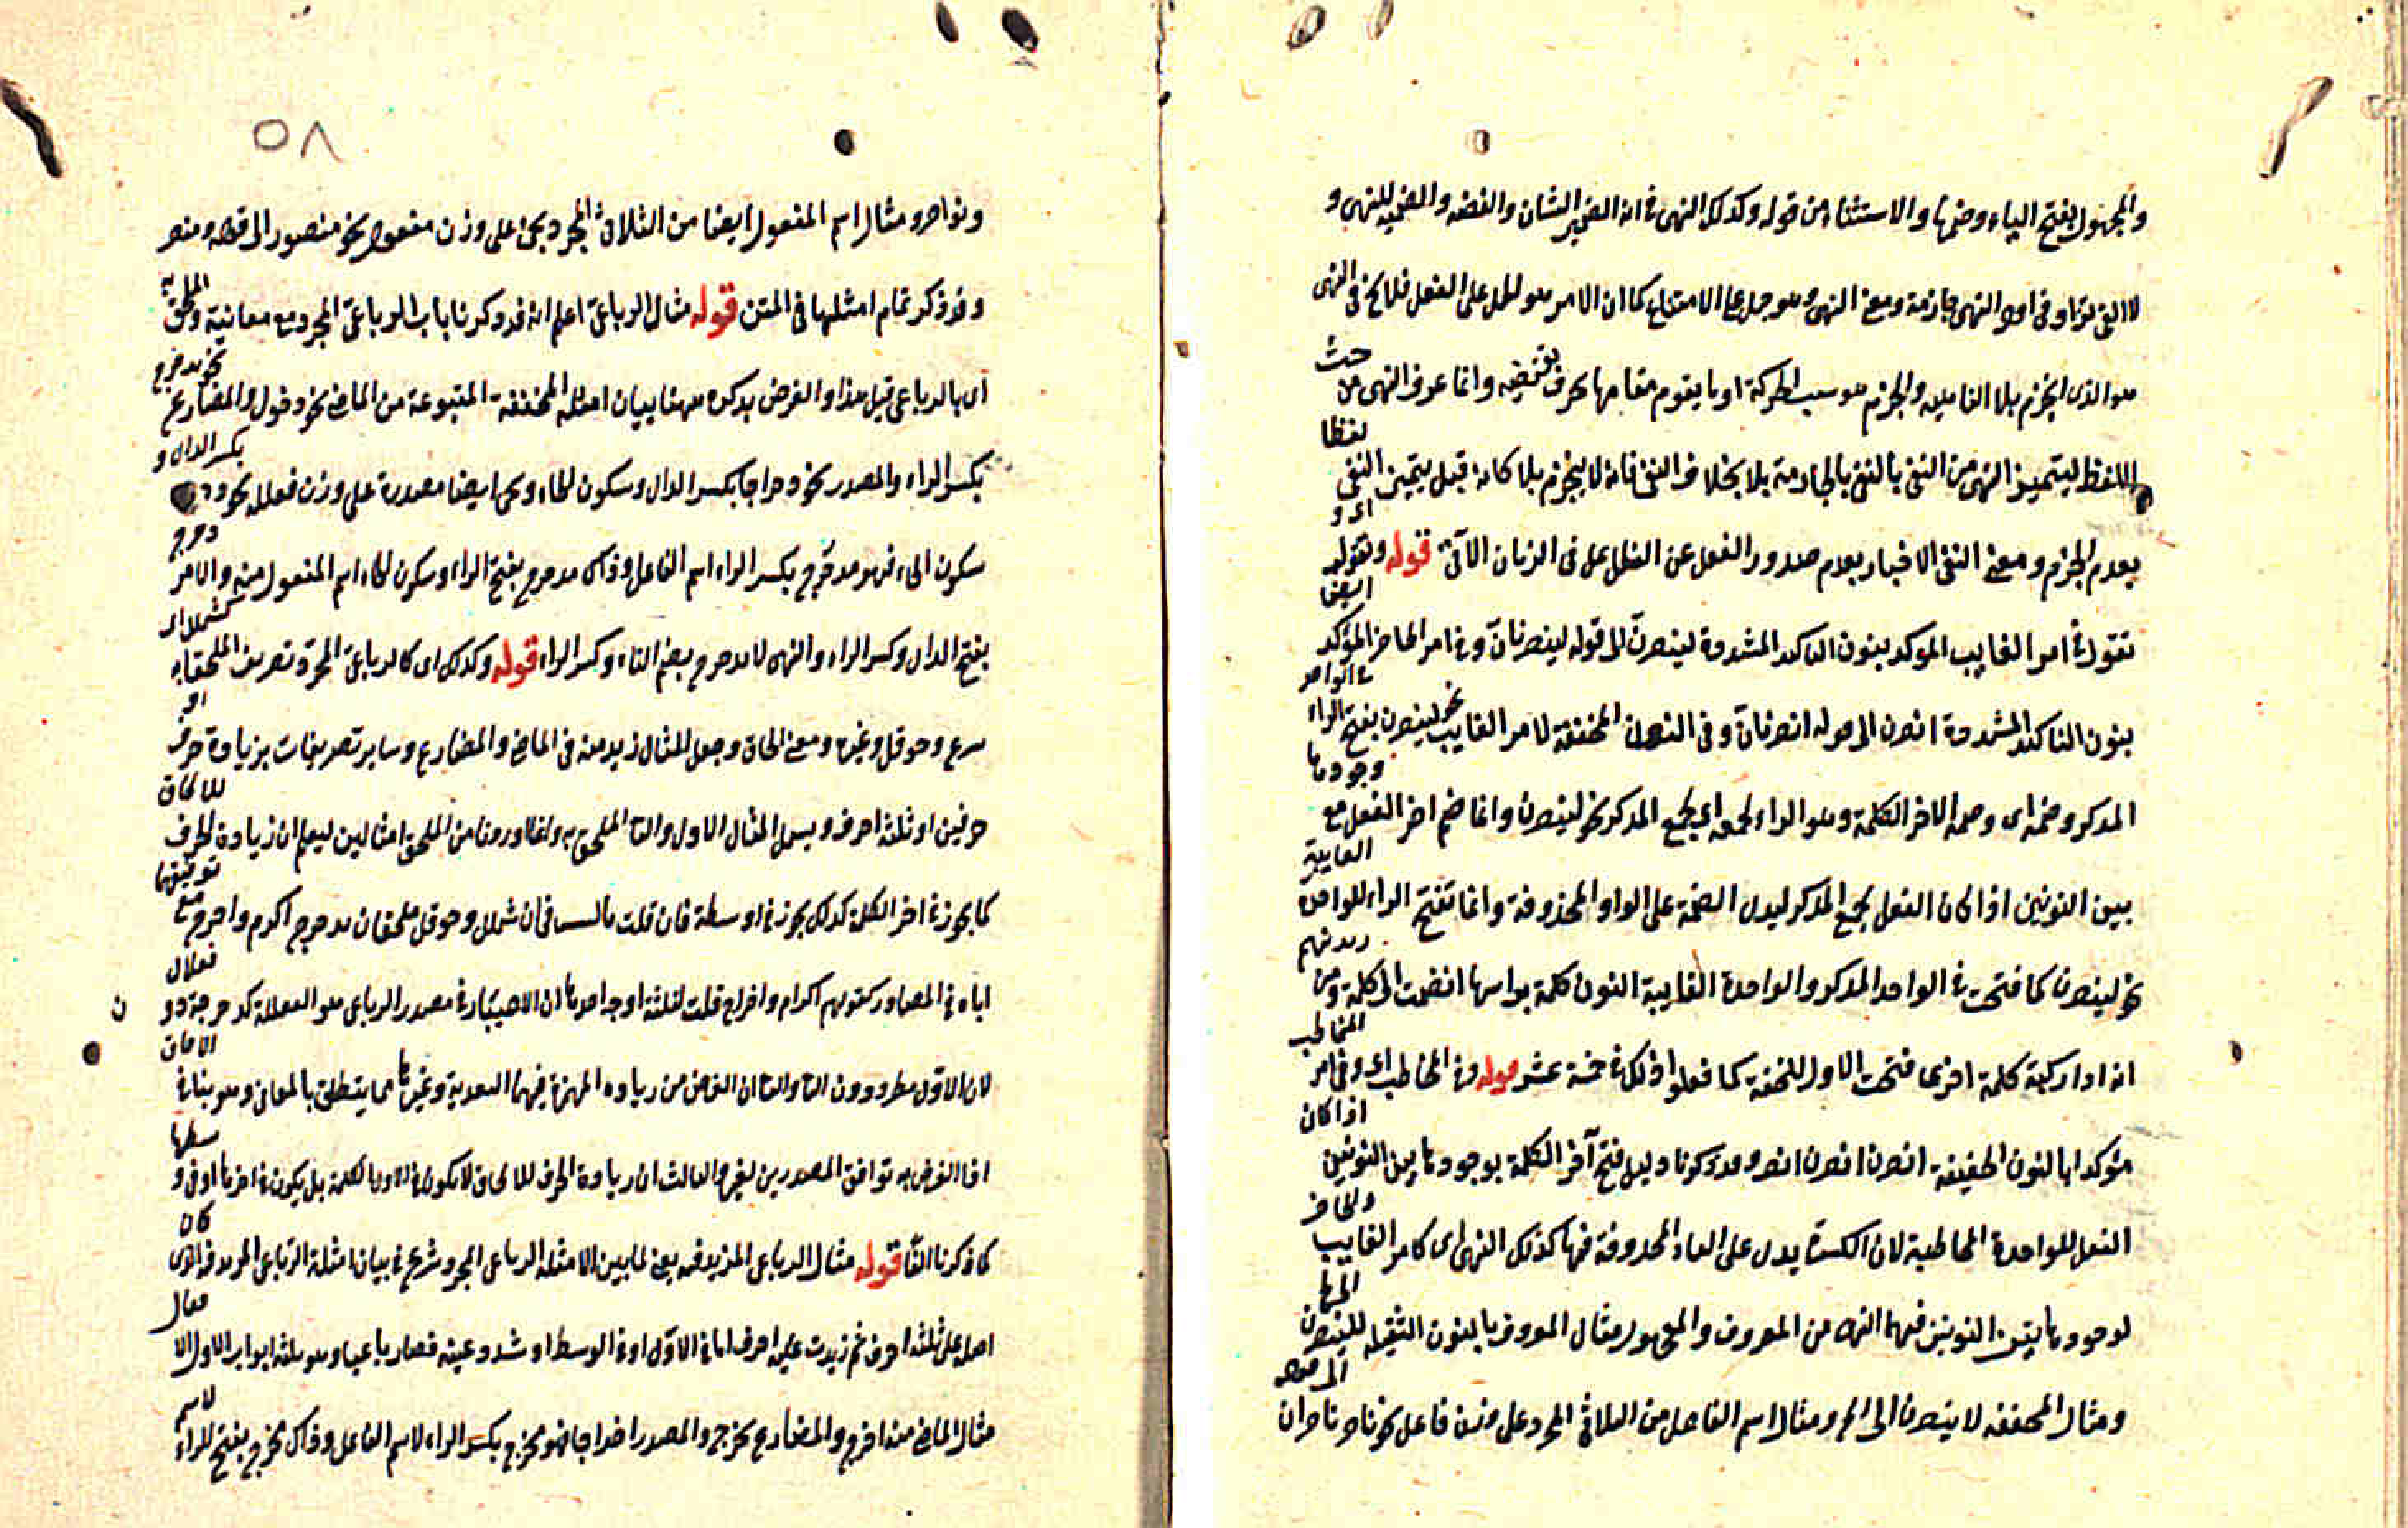 والمجهول بفتح الياء وضمها والاستثناء من قوله وكذلك النهى فى انه الضمير الشان والقصه والضمير للنهى و
لا التى فى اول النهى جازمة ومعنى النهى وهو حمل على الامتناع كما ان الامر هو الحمل على الفعل فلا يخ فى النهى
هو الذى انجزم بلا الناهيه والجزم هو سبب الحركة او ما يقوم مقامها بحرف يقتضيه وانما عرف النهى من حيث
اللفظ ليتميز النهى من النفى بالنفى بالجازمة بلا بخلاف النفى فانه لا ينجزم بلا كانه قيل يتميز النفى لفظا
بعدم الجزم ومعنى النفى الاخبار بعدم صدور الفعل عن الفاعل فى الزمان الآتى قوله وتقول اى و
تقول فى امر الغايب الموكد بنون التاكيد المشددة لينصرن الى قوله لينصرنان وفى امر الحاضر المؤكد ايضا
بنون التاكيد المشددة انصرن الى قوله انصرنان وفى النون المخففة لامر الغايب نحو لينصرن بفتح الراء فى الواحد
المذكر وضمه اى وضمه الاخر الكلمة وهو الراء لجمعه اى لجمع المذكر نحو لينصرن وانما ضم اخر الفعل مع وجودها
بين النونين اذا كان الفعل لجمع المذكر ليدل الضمة على الواو المحذوفة وانما تفتح الراء للواحدة الغايبة
نحو لينصرن كما فتحت فى الواحد المذكر والواحدة الغايبة النون كلمة براسها انضمت الى كلمة ومن
انه اذا ركبت كلمة اخرى فتحت الاول للخفة كما فعلوا ذلك فى خمسة عشر قوله وفى المخاطب اى وفى امر المخاطب
مؤكدا بالنون الخفيفة انصرن انصرن انصرن وقد ذكرنا دليل فتح آخر الكلمة بوجودها بين النونين اذا كان
الفعل للواحدة المخاطبة لان الكسرة يدل على الياء المحذوفة فيها كذلك النهى اى كامر الغايب والحاضر
لوجودها بين النونين فيهما النهى من المعروف والمجهول مثال المعروف بالنون الثقيله لا ينصرن
ومثال المخففه لا ينصرن الى اخره ومثال اسم الفاعل من الثلاثى المجرد على وزن فاعل نحو ناصر ناصران
٥٨
ونواصر ومثال اسم المفعول ايضا من الثلاثى المجرد يجئ على وزن مفعول نحو منصور الى قوله ومناصر
وقد ذكر تمام امثلتها فى المتن قوله مثال الرباعى اعلم انه قد ذكرنا باب الرباعى المجرد مع معانيه والملحق به
اى بالرباعى قبل هذا والغرض بذكره ههنا بيان امثلته المختلفة المتنوعة من الماضى نحو دحرج والمضارع نحو يدحرج
بكسر الراء والمصدر نحو دحراجا بكسر الدال وسكون الحاء ويجئ ايضا مصدره على وزن فعللة نحو بكسر الدال و
سكون الحاء فهو مدحرج بكسر الراء اسم الفاعل وذاك مدحرج بفتح الراء وسكون الحاء اسم المفعول منه والامر دحرج
بفتح الدال وكسر الراء والنهى لا تدحرج بضم التاء وكسر الراء قوله وكذلك اى كالرباعى المجرد تصريف الملحقات به كشملل اى
وحوقل وغيره ومعنى الحاق وجعل المثال زيد منه فى الماضى والمضارع وساير تصريفات بزيادة حرف او
حرفين او ثلثة احرف ويسمى المثال الاول والثانى الملحق به وانما اوردنا من الملحق مثالين ليعلم ان زيادة الحرف للالحاق
كما يجوز فى اخر الكلمة كذلك يجوز فى اوسطه فان قلت ما السبب فى ان شملل وحوقل ملحقان بدحرج اكرم واخرج مع توفيقهما
اياه فى المصادر كقولهم اكرام واخراج قلت لثلثة اوجه احدها ان الاعتبار فى مصدر الرباعى هو الفعللة كدحرجة دون فعلال
لان الاول مطرد دون الثانى والثانى ان الغرض من زيادة الهمزة فيهما التعدية وغيرها مما يتعلق بالمعانى وهو ينافى الالحاق
اذ الغرض به توافق المصدرين لغير والثالث ان زيادة الحرف للالحاق لا يكون فى اول الكلمة بل يكون فى اخرها او فى وسطها
كما ذكرنا آنفا قوله مثال الرباعى المزيد فيه يعنى لما بين الامثلة الرباعى المجرد شرع فى بيان امثلة الرباعى المزيد فيه الذى كان
اصله على ثلثة احرف ثم زيدت عليه احرف اما فى الاول او فى الوسط او شدد عينه فصار رباعيا وهو ثلثة ابواب الاول افعال
مثال الماضى منه اخرج والمضارع يخرج والمصدر اخراجا فهو مخرج بكسر الراء لاسم الفاعل وذاك مخرج بفتح الراء لاسم